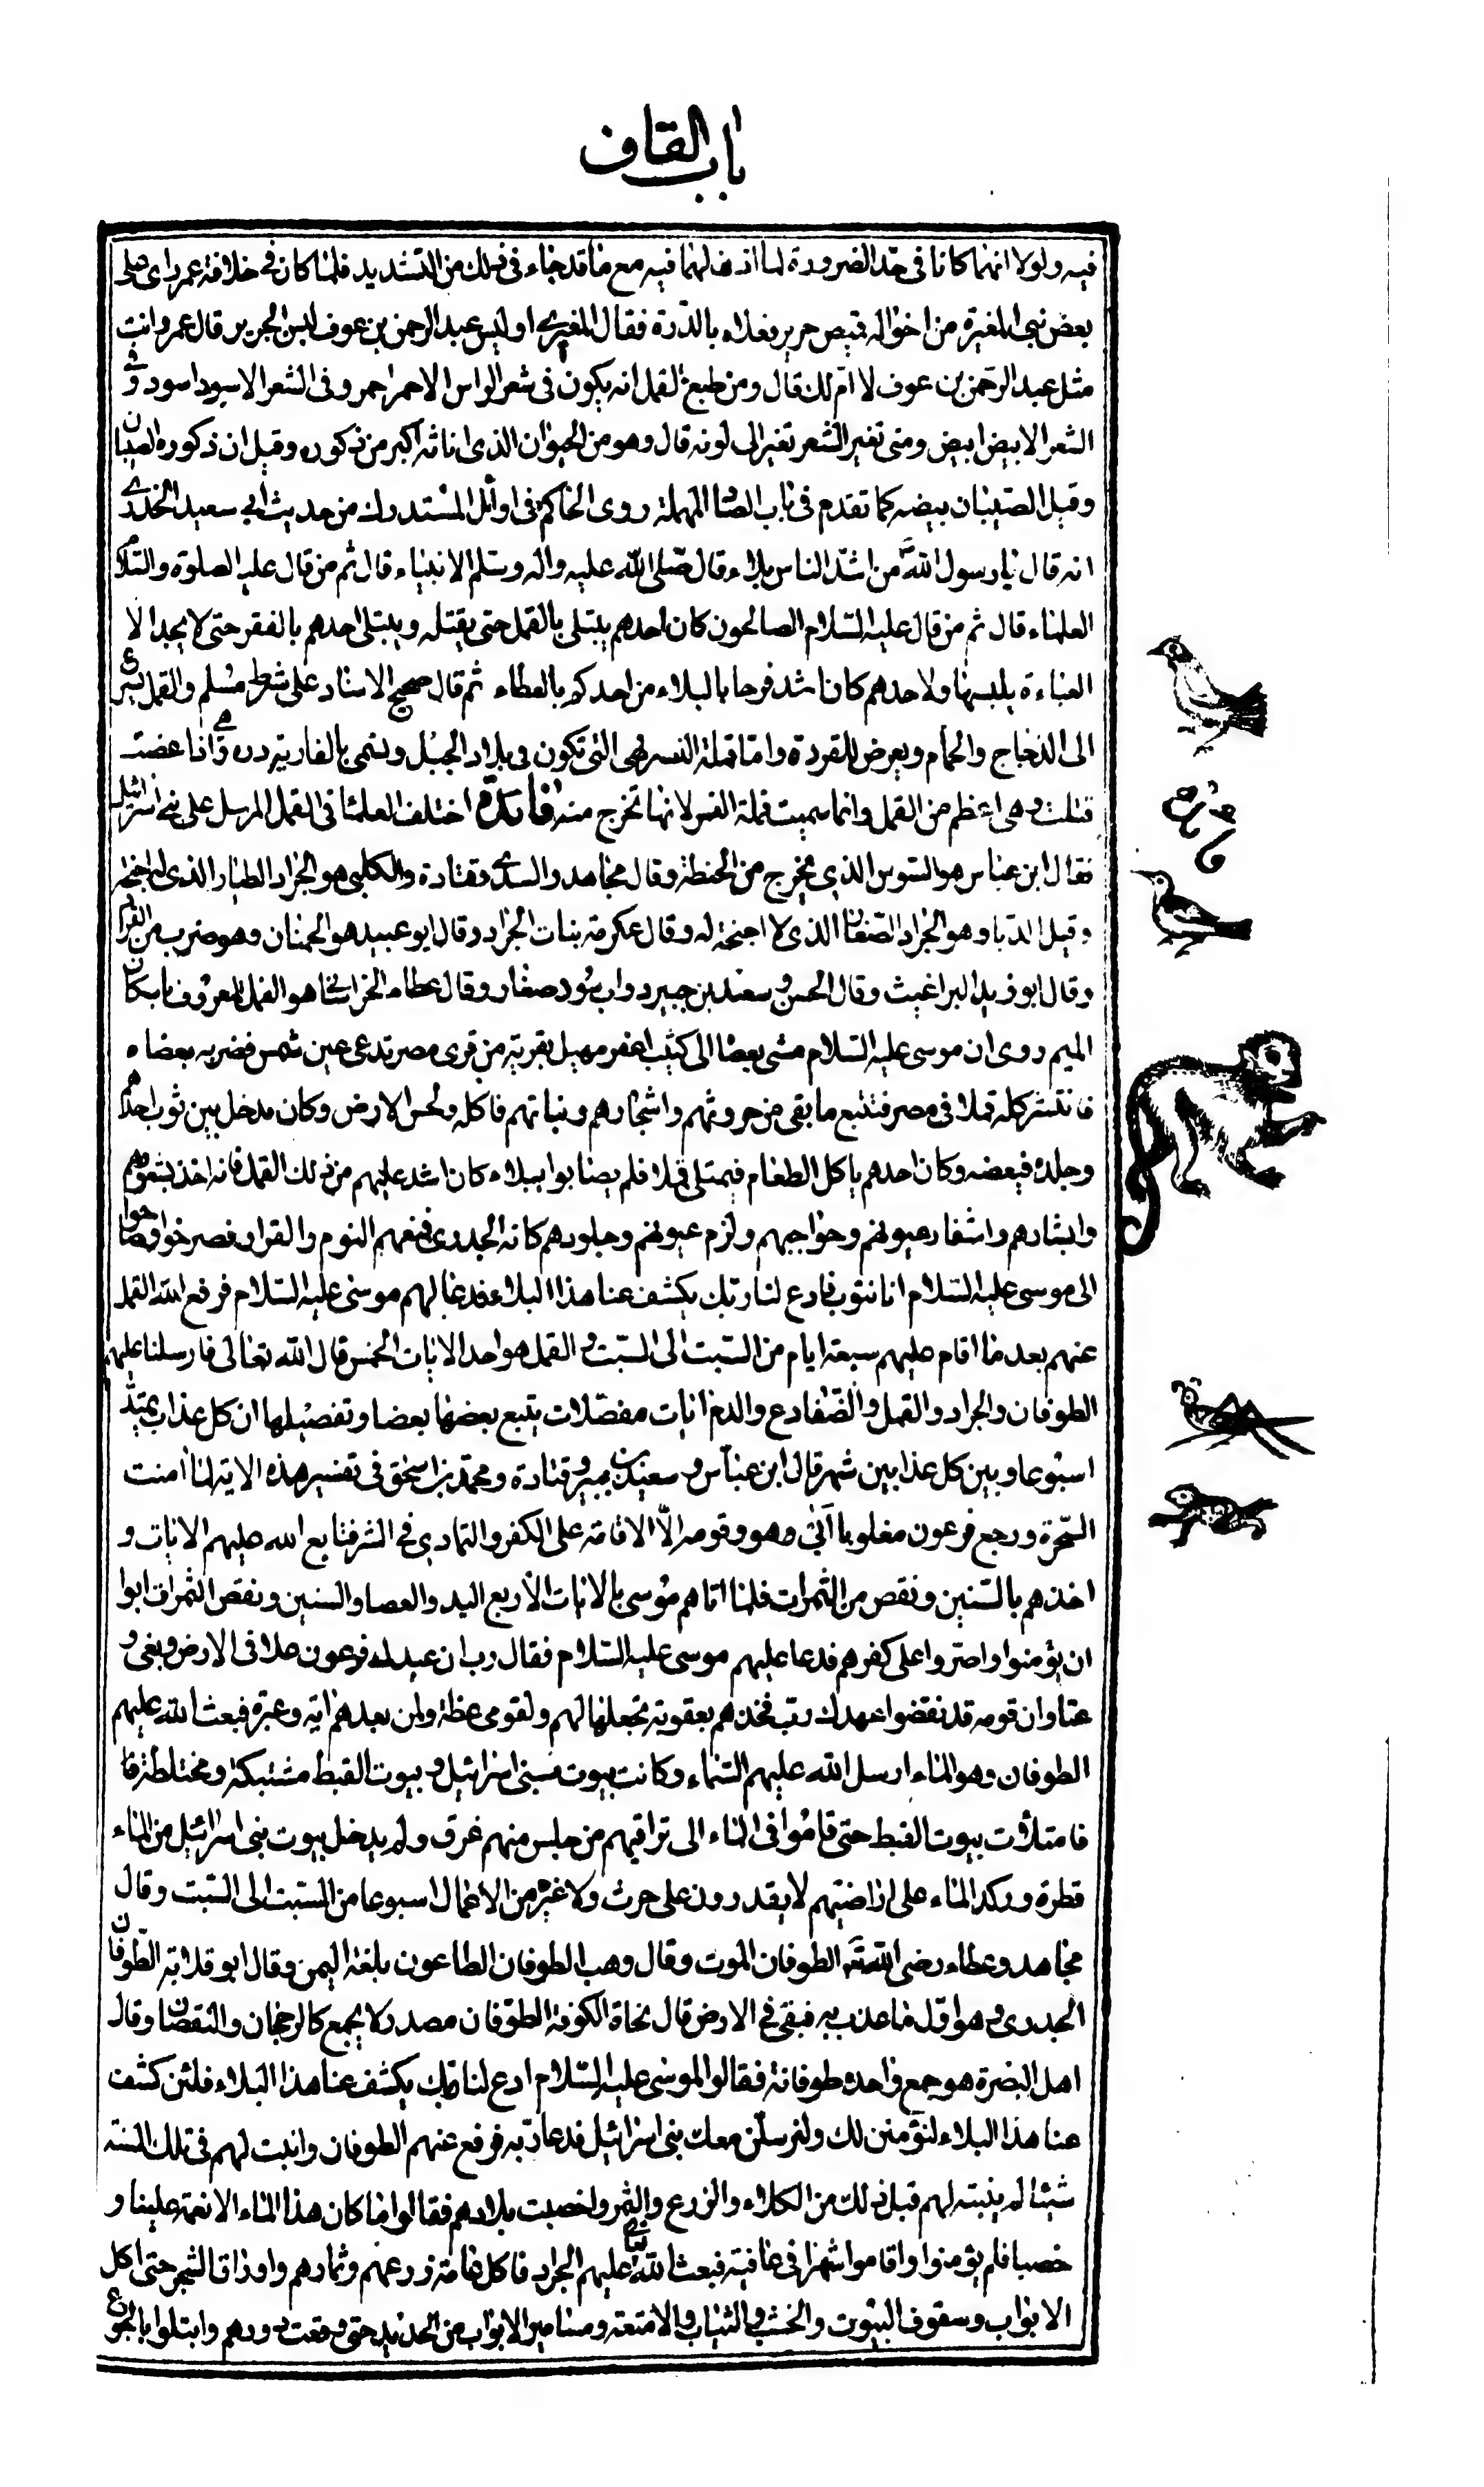 باب القاف
فيه ولولا انهما كانا فى حد الضرورة لما اذن لهما فيه مع ما قد جاء فى ذلك من التشديد فلما كان فى خلافة عمر راى على
بعض بنى المغيرة من اخواله قميص حرير فعلاه بالدرة فقال المغيرى اوليس عبد الرحمن بن عوف لبس الحرير قال عمر وانت
مثل عبد الرحمن بن عوف لا ام لك قال ومن طبع القمل انه يكون فى شعر الراس الاحمر احمر وفى الشعر الاسود اسود وفى
الشعر الابيض ابيض ومتى تغير الشعر تغير الى لونه قال وهو من الحيوان الذى اناثه اكبر من ذكوره وقيل ان ذكوره الصيبان
وقيل الصيبان بيضه كما تقدم فى باب الصاد المهملة روى الحاكم فى اوائل المستدرك من حديث ابى سعيد الخدرى
انه قال يا رسول الله من اشد الناس بلاء قال صلى الله عليه واله وسلم الانبياء قال ثم من قال عليه الصلوة والسلام
العلماء قال ثم من قال عليه السلام الصالحون كان احدهم يبتلى بالقمل حتى يقتله ويبتلى احدهم بالفقر حتى لا يجد الا
العباءة يلبسها ولاحدهم كان اشد فرحا بالبلاء من احدكم بالعطاء ثم قال صحيح الاسناد على شرط مسلم والقمل يسرع
الى الدجاج والحمام ويعرض للقردة واما قملة النسر فهى التى تكون فى بلاد الجبل وتسمى بالفارسية دره وهى اذا عضت
قتلت وهى اعظم من القمل وانما سميت قملة النسر لانها تخرج منه فائدة اختلف العلماء فى القمل المرسل على بنى اسرائيل
فقال ابن عباس هو السوس الذى يخرج من الحنطة وقال مجاهد والسدى وقتادة والكلبى هو الجراد الطيار الذى له اجنحة
وقيل الدبا وهو الجراد الصغار الذى لا اجنحة له وقال عكرمة بنات الجراد وقال ابو عبيد هو الحمنان وهو ضرب من القراد
وقال ابو زيد البراغيث وقال الحسن وسعيد بن جبير دواب سود صغار وقال عطاء الخراسانى هو القمل المعروف باسكان
الميم روى ان موسى عليه السلام مشى بعصا الى كثيب اعفر مهيل بقرية من قرى مصر تدعى عين شمس فضربه بعصاه
فانتشر كله قملا فى مصر فتتبع ما بقى من حروثهم واشجارهم ونباتهم فاكله ولحس الارض وكان يدخل بين ثوب احدهم
وجلده فيعضه وكان احدهم ياكل الطعام فيمتلى قملا فلم يصابوا ببلاء كان اشد عليهم من ذلك القمل فانه اخذ بشعورهم
وابشارهم واشفار عيونهم وحواجبهم ولزم عيونهم وجلودهم كانه الجدرى فمنعهم النوم والقرار فصرخوا وصاحوا
الى موسى عليه السلام انا نتوب فادع لنا ربك يكشف عنا هذا البلاء فدعا لهم موسى عليه السلام فرفع الله القمل
عنهم بعد ما اقام عليهم سبعة ايام من السبت الى السبت والقمل هو احد الايات الخمس قال الله تعالى فارسلنا عليهم
الطوفان والجراد والقمل والضفادع والدم ايات مفصلات يتبع بعضها بعضا وتفصيلها ان كل عذاب يمتد
اسبوعا وبين كل عذابين شهر قال ابن عباس وسعيد بن جبير وقتادة ومحمد بن اسحق فى تفسير هذه الاية لما امنت
السحرة ورجع فرعون مغلوبا ابى وهو وقومه الا الاقامة على الكفر والتمادى فى الشر فتابع الله عليهم الايات و
اخذهم بالسنين ونقص من الثمرات فلما اتاهم موسى بالايات الاربع اليد والعصا والسنين ونقص الثمرات ابوا
ان يؤمنوا واصروا على كفرهم فدعا عليهم موسى عليه السلام فقال رب ان عبدك فرعون علا فى الارض وبغى و
عتا وان قومه قد نقضوا عهدك رب فخذهم بعقوبة تجعلها لهم ولقومى عظة ولمن بعدهم اية وعبرة فبعث الله عليهم
الطوفان وهو الماء ارسل الله عليهم السماء وكانت بيوت بنى اسرائيل وبيوت القبط مشتبكة ومختلطة
فامتلأت بيوت القبط حتى قاموا فى الماء الى تراقيهم من جلس منهم غرق ولم يدخل بيوت بنى اسرائيل من الماء
قطرة وركد الماء على اراضيهم لا يقدرون على حرث ولا غيره من الاعمال اسبوعا من السبت الى السبت وقال
مجاهد وعطاء رضى الله عنه الطوفان الموت وقال وهب الطوفان الطاعون بلغة اليمن وقال ابو قلابة الطوفان
الجدرى وهو اول ما عذب به فبقى فى الارض قال نحاة الكوفة الطوفان مصدر لا يجمع كالرجحان والنقصان وقال
اهل البصرة هو جمع واحده طوفانة فقالوا لموسى عليه السلام ادع لنا ربك يكشف عنا هذا البلاء فلئن كشفت
عنا هذا البلاء لنؤمنن لك ولنرسلن معك بنى اسرائيل فدعا ربه فرفع عنهم الطوفان وانبت لهم فى تلك السنة
شيئا لم ينبته لهم قبل ذلك من الكلاء والزرع والثمر واخصبت بلادهم فقالوا ما كان هذا الماء الا نعمة علينا و
خصبا فلم يؤمنوا واقاموا شهرا فى عافية فبعث الله تعالى عليهم الجراد فاكل عامة زرعهم وثمارهم واوراق الشجر حتى اكل
الابواب وسقوف البيوت والخشب والثياب والامتعة ومسامير الابواب من الحديد حتى وقعت دورهم وابتلوا بالجوع